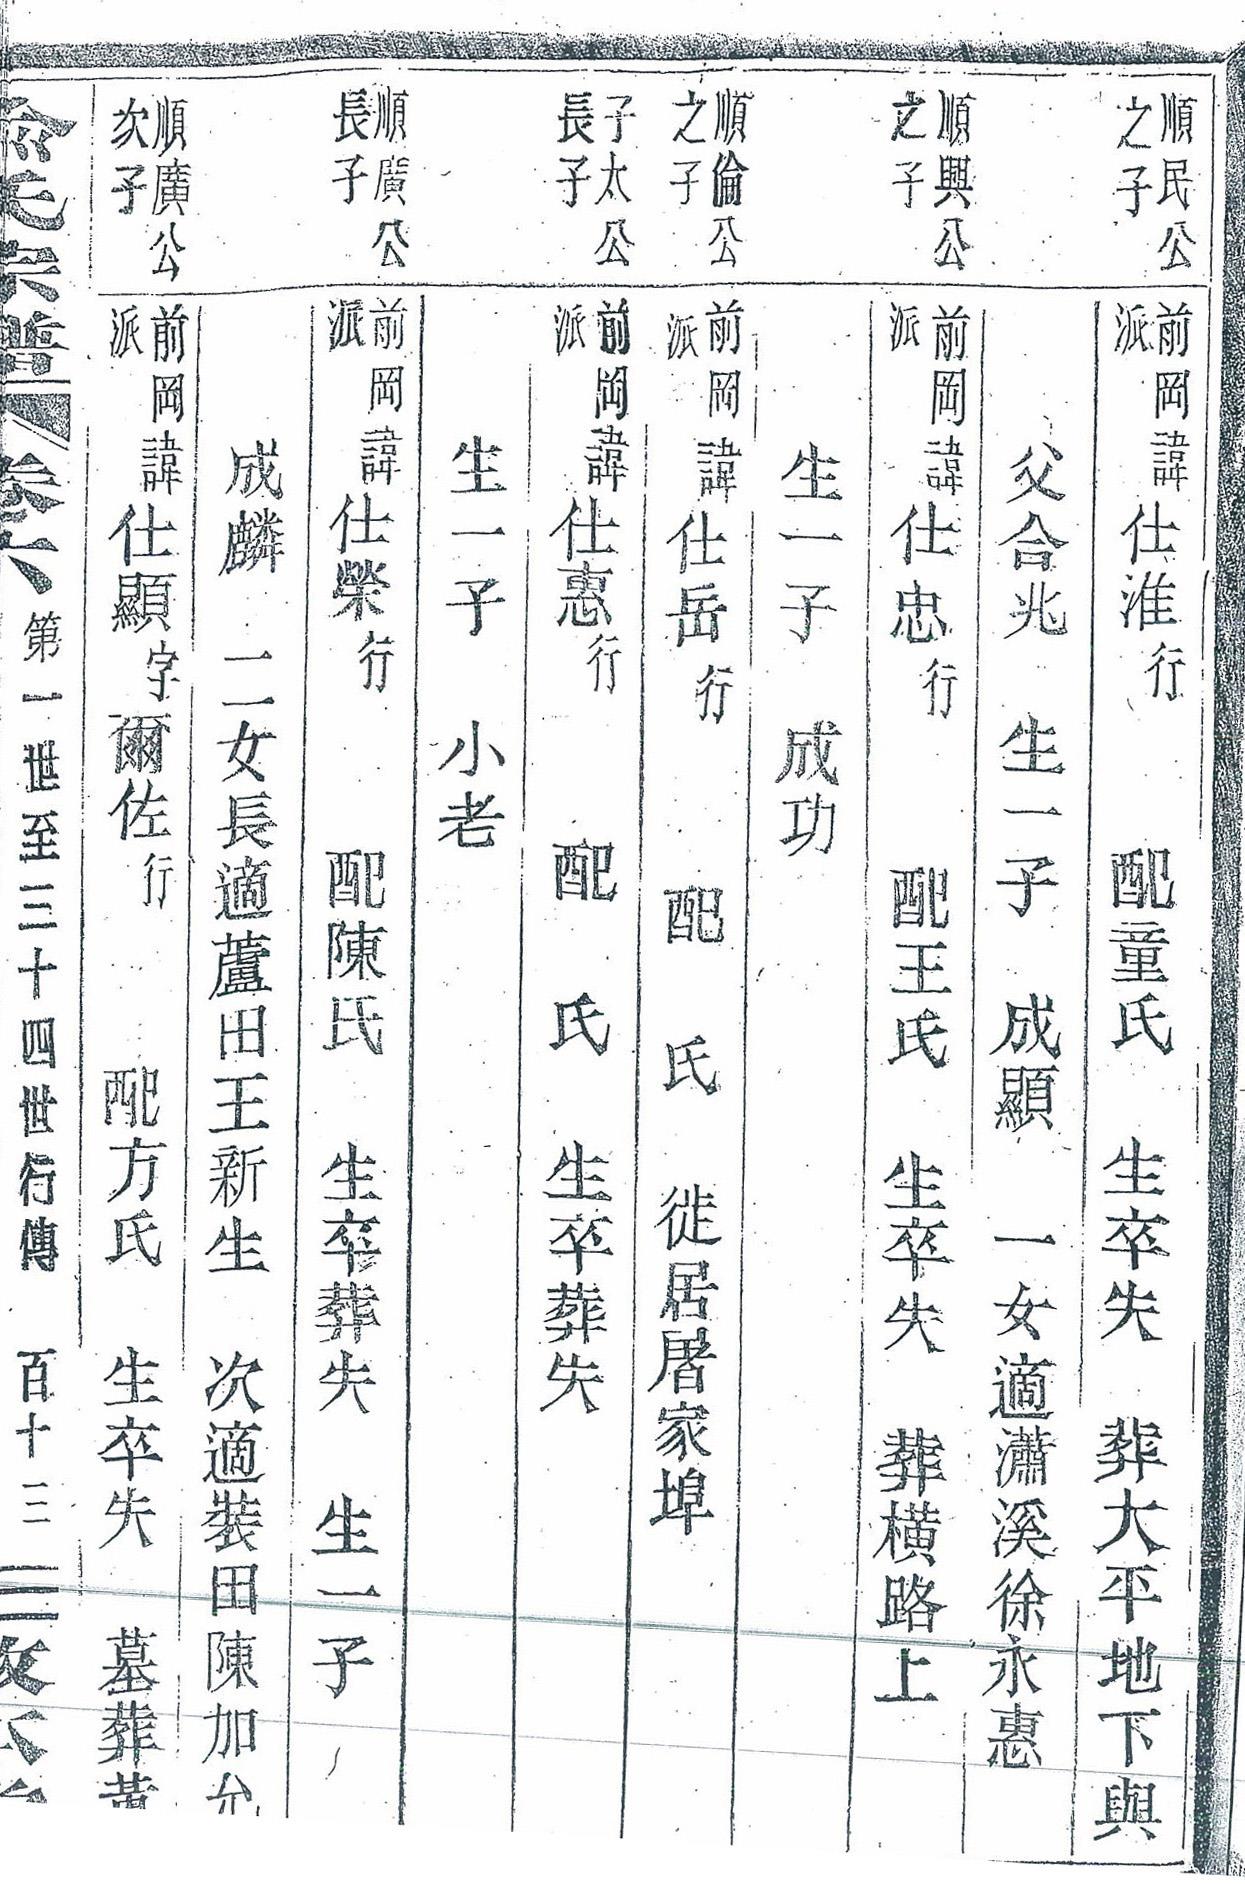 順民公
之子
前岡派諱仕淮行 配童氏 生卒失 葬大平地下與
父合兆 生一子 成顯 一女適瀟溪徐永惠
順興公
之子
前岡派諱仕忠行 配王氏 生卒失 葬橫路上
生一子 成功
順倫公
之子
前岡派諱仕岳行 配 氏 徙居屠家埠
子太公
長子
前岡派諱仕惠行 配 氏 生卒葬失
生一子 小老
順廣公
長子
前岡派諱仕榮行 配陳氏 生卒葬失 生一子
成麟 二女長適蘆田王新生 次適裝田陳加允
順廣公
次子
前岡派諱仕顯字爾佐行 配方氏 生卒失 墓葬黃
氏宗譜 卷六 第一世至三十四世行傳 百十三